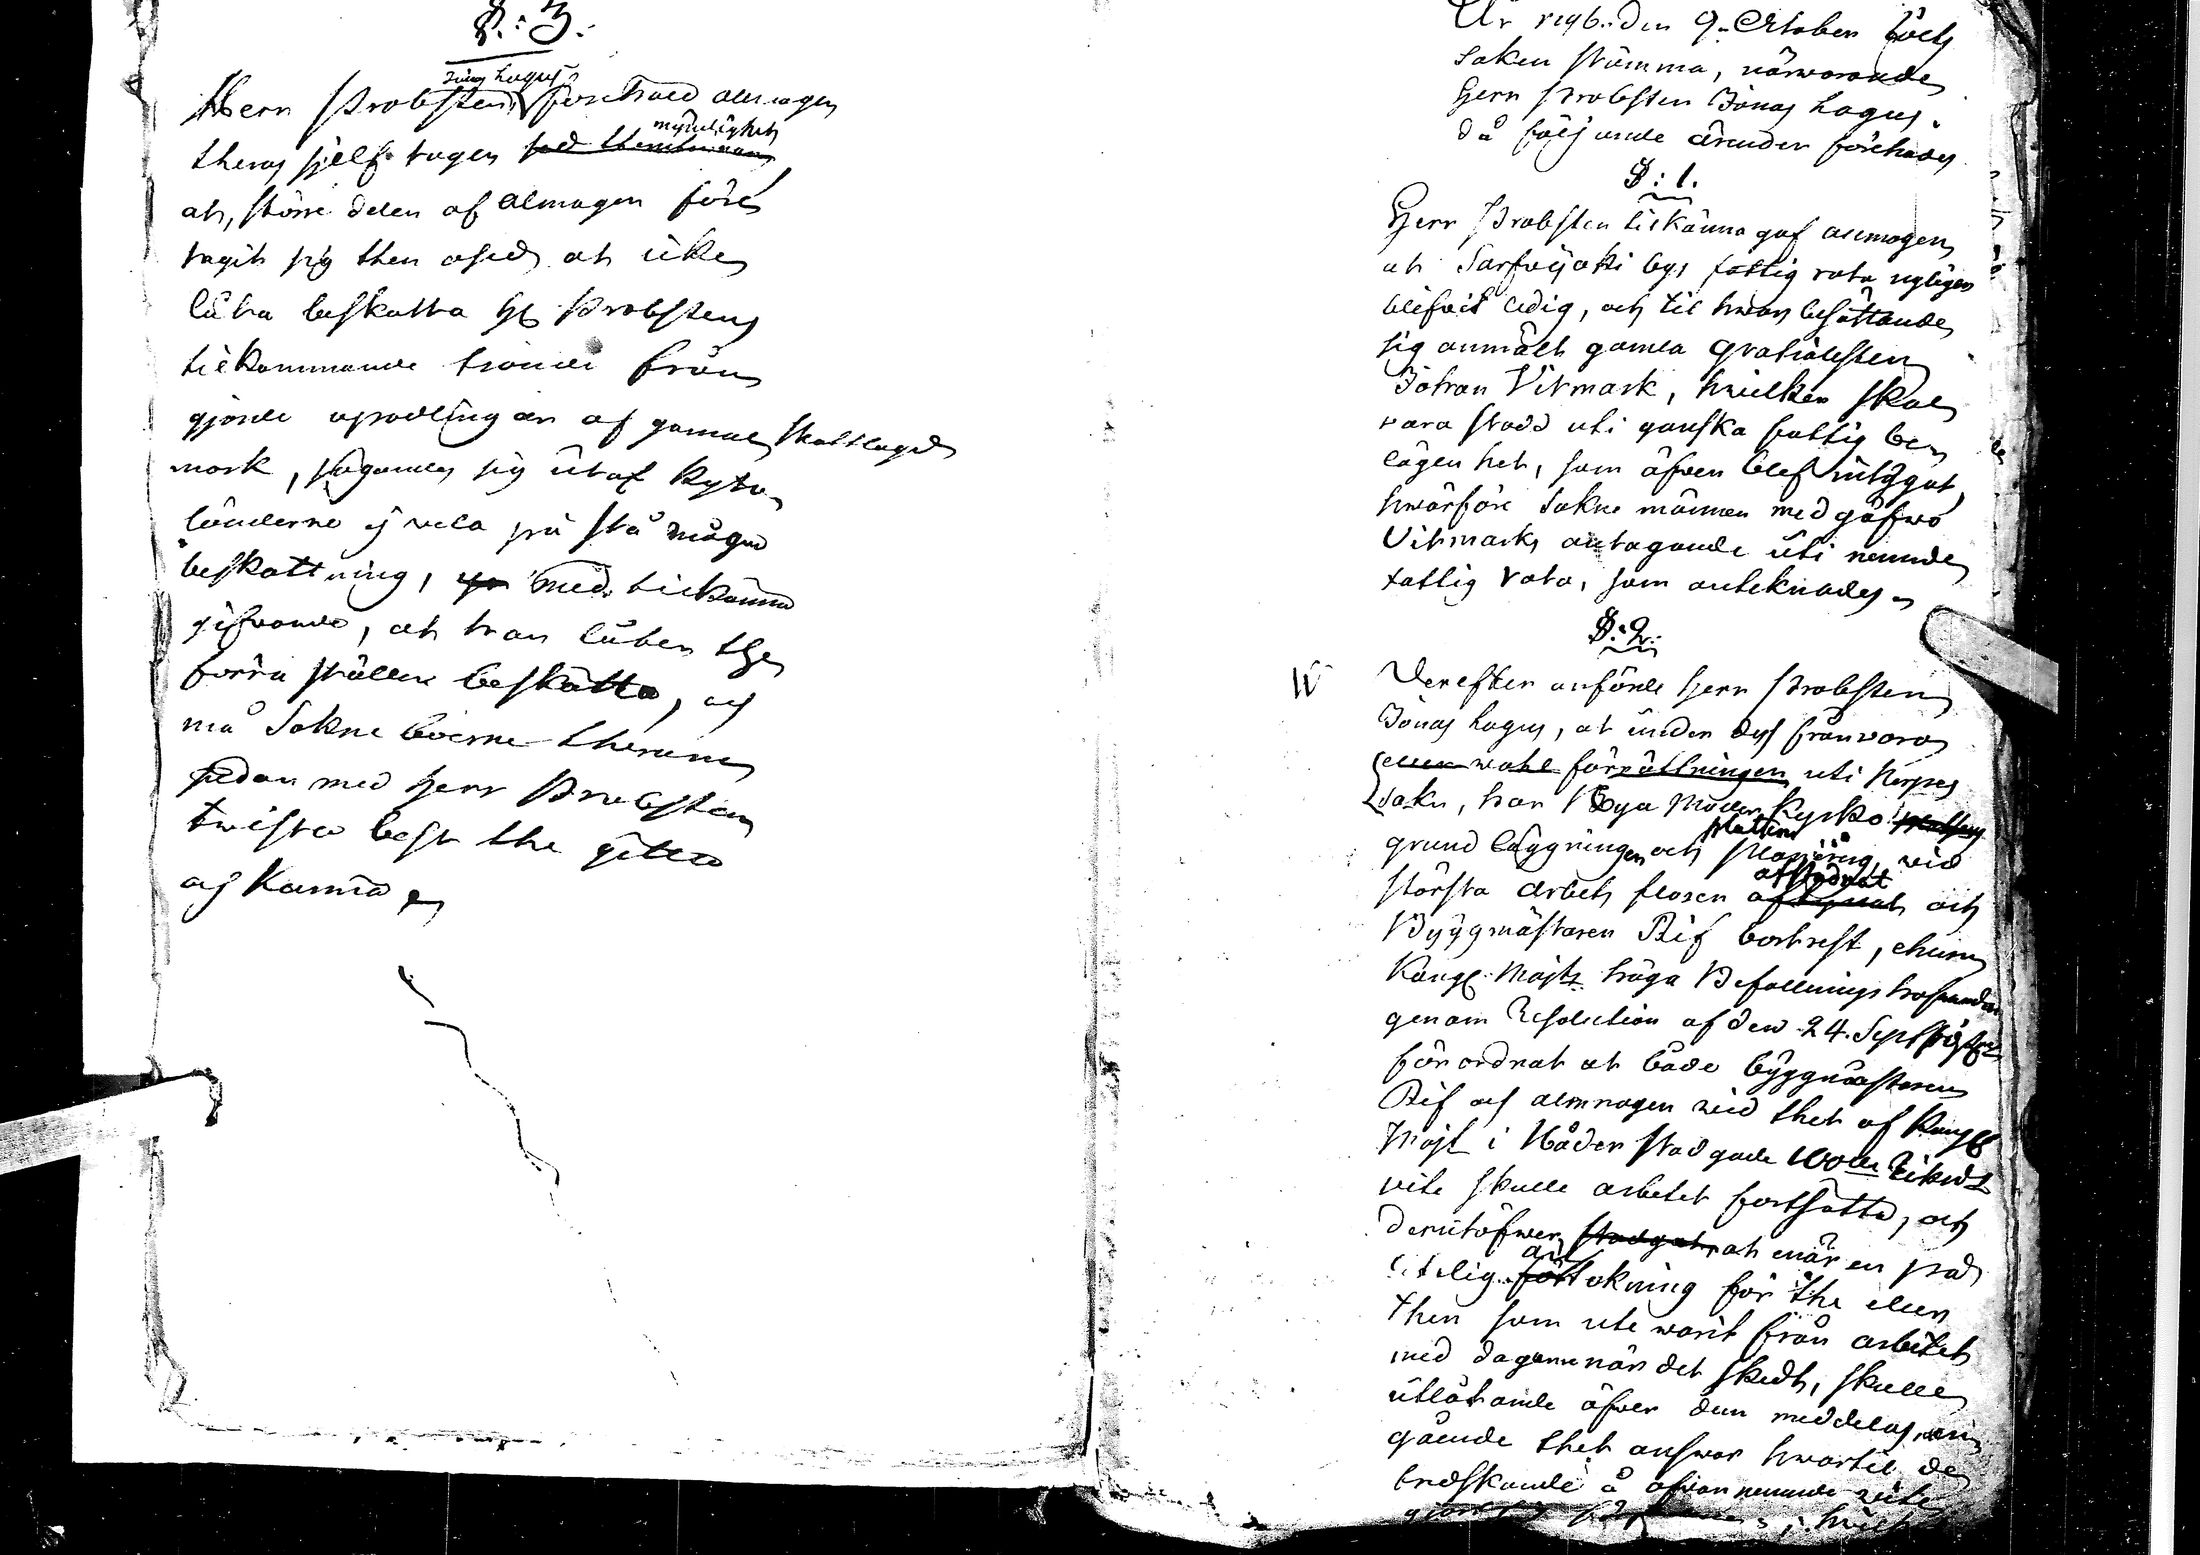 §: 3.
Jonas Lagus
Herr Probsten förehöld almogen
myndighet
theras sjelf tagen
at, större delen af almogen före
tagit sig then osed, at icke
låta beskatta H: Probstens
tilkommande tionde från
gjorde uprodlingar af gamal skattlagd
mark, sägandes sig utaf Kyto
länderne ej vela på stå någon
beskattning, med tilkänna
gifvande, at han låter the
förra ställen beskatta, och
må Sokne boerne therom
sedan med Herr Probsten
twista best the gitta
och kunna
År 1796. den 9. October höltz
Sokne stämma, närwarande
Herr Probsten Jonas Lagus.
då följande ärender förehades
§: 1.
Herr Probsten tilkänna gaf almogen,
at Sarfwijoki bys fattig rota nyligen
blifvit ledig, och til hwars besättande
sig anmält gamla gratialisten
Johan Vitmark, hwilken skal
vara stadd uti ganska fattig be
lägenhet, som äfwen blef intygat,
hwarföre Sokne männen med gåfwo
Vitmarks antagande uti nemnde
fattig rota, som anteknades
§: 2.
Derefter anförde Herr Probsten
Jonas Lagus, at under dess frånvaro
eller wahl förrättningen uti
Sokn, har Nya Moder Kyrko
grund läggningen och vid
afstadnat
största arbets flosen och
Byggmästaren Rif bortrest, ehuru
Kongl: Majts höga Befallnings hafwanden
genom Resolution af den 24. Sept
förordnat at både byggmästaren
Rif och almogen vid thet af Kongl
Majt i Nåder stadgade 100de Rikd
vite skulle arbetet fortsätta, och
derutöfwer stadgat, at enär en på
litelig för the eller
then som ute warit från arbetet
med dagarne när det skedt, skulle
utlåtande öfver dem meddelas,
gående thet answar hwartil de
bredskande å ofvannemnde vite
gjort sig